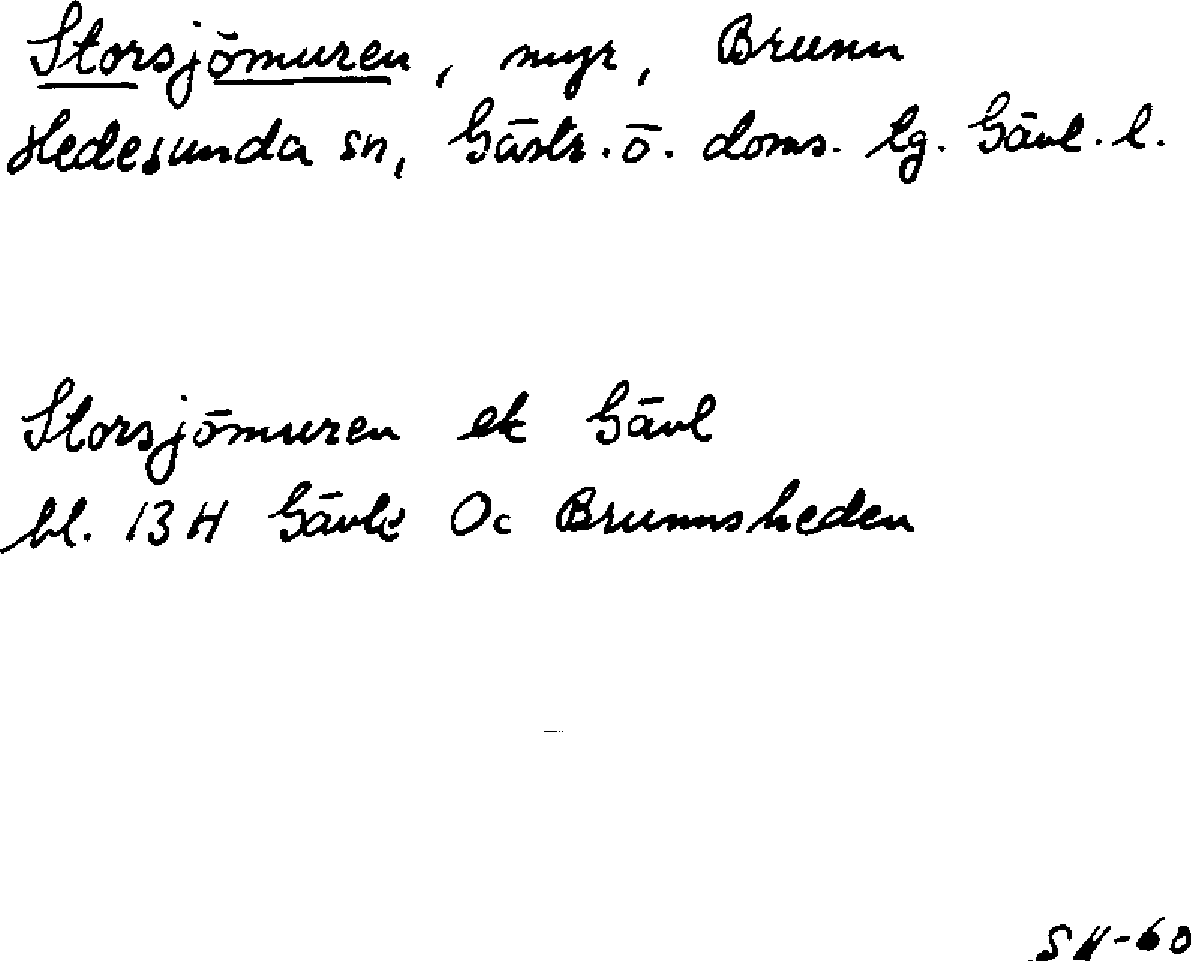 Storsjömuren, myr, Brunn
Hedesunda sn, Gästr. ö. doms. lg. Gävl. l.
Storsjömuren ek Gävl
bl. 13H Gävle Oc Brunnsheden
SH-60